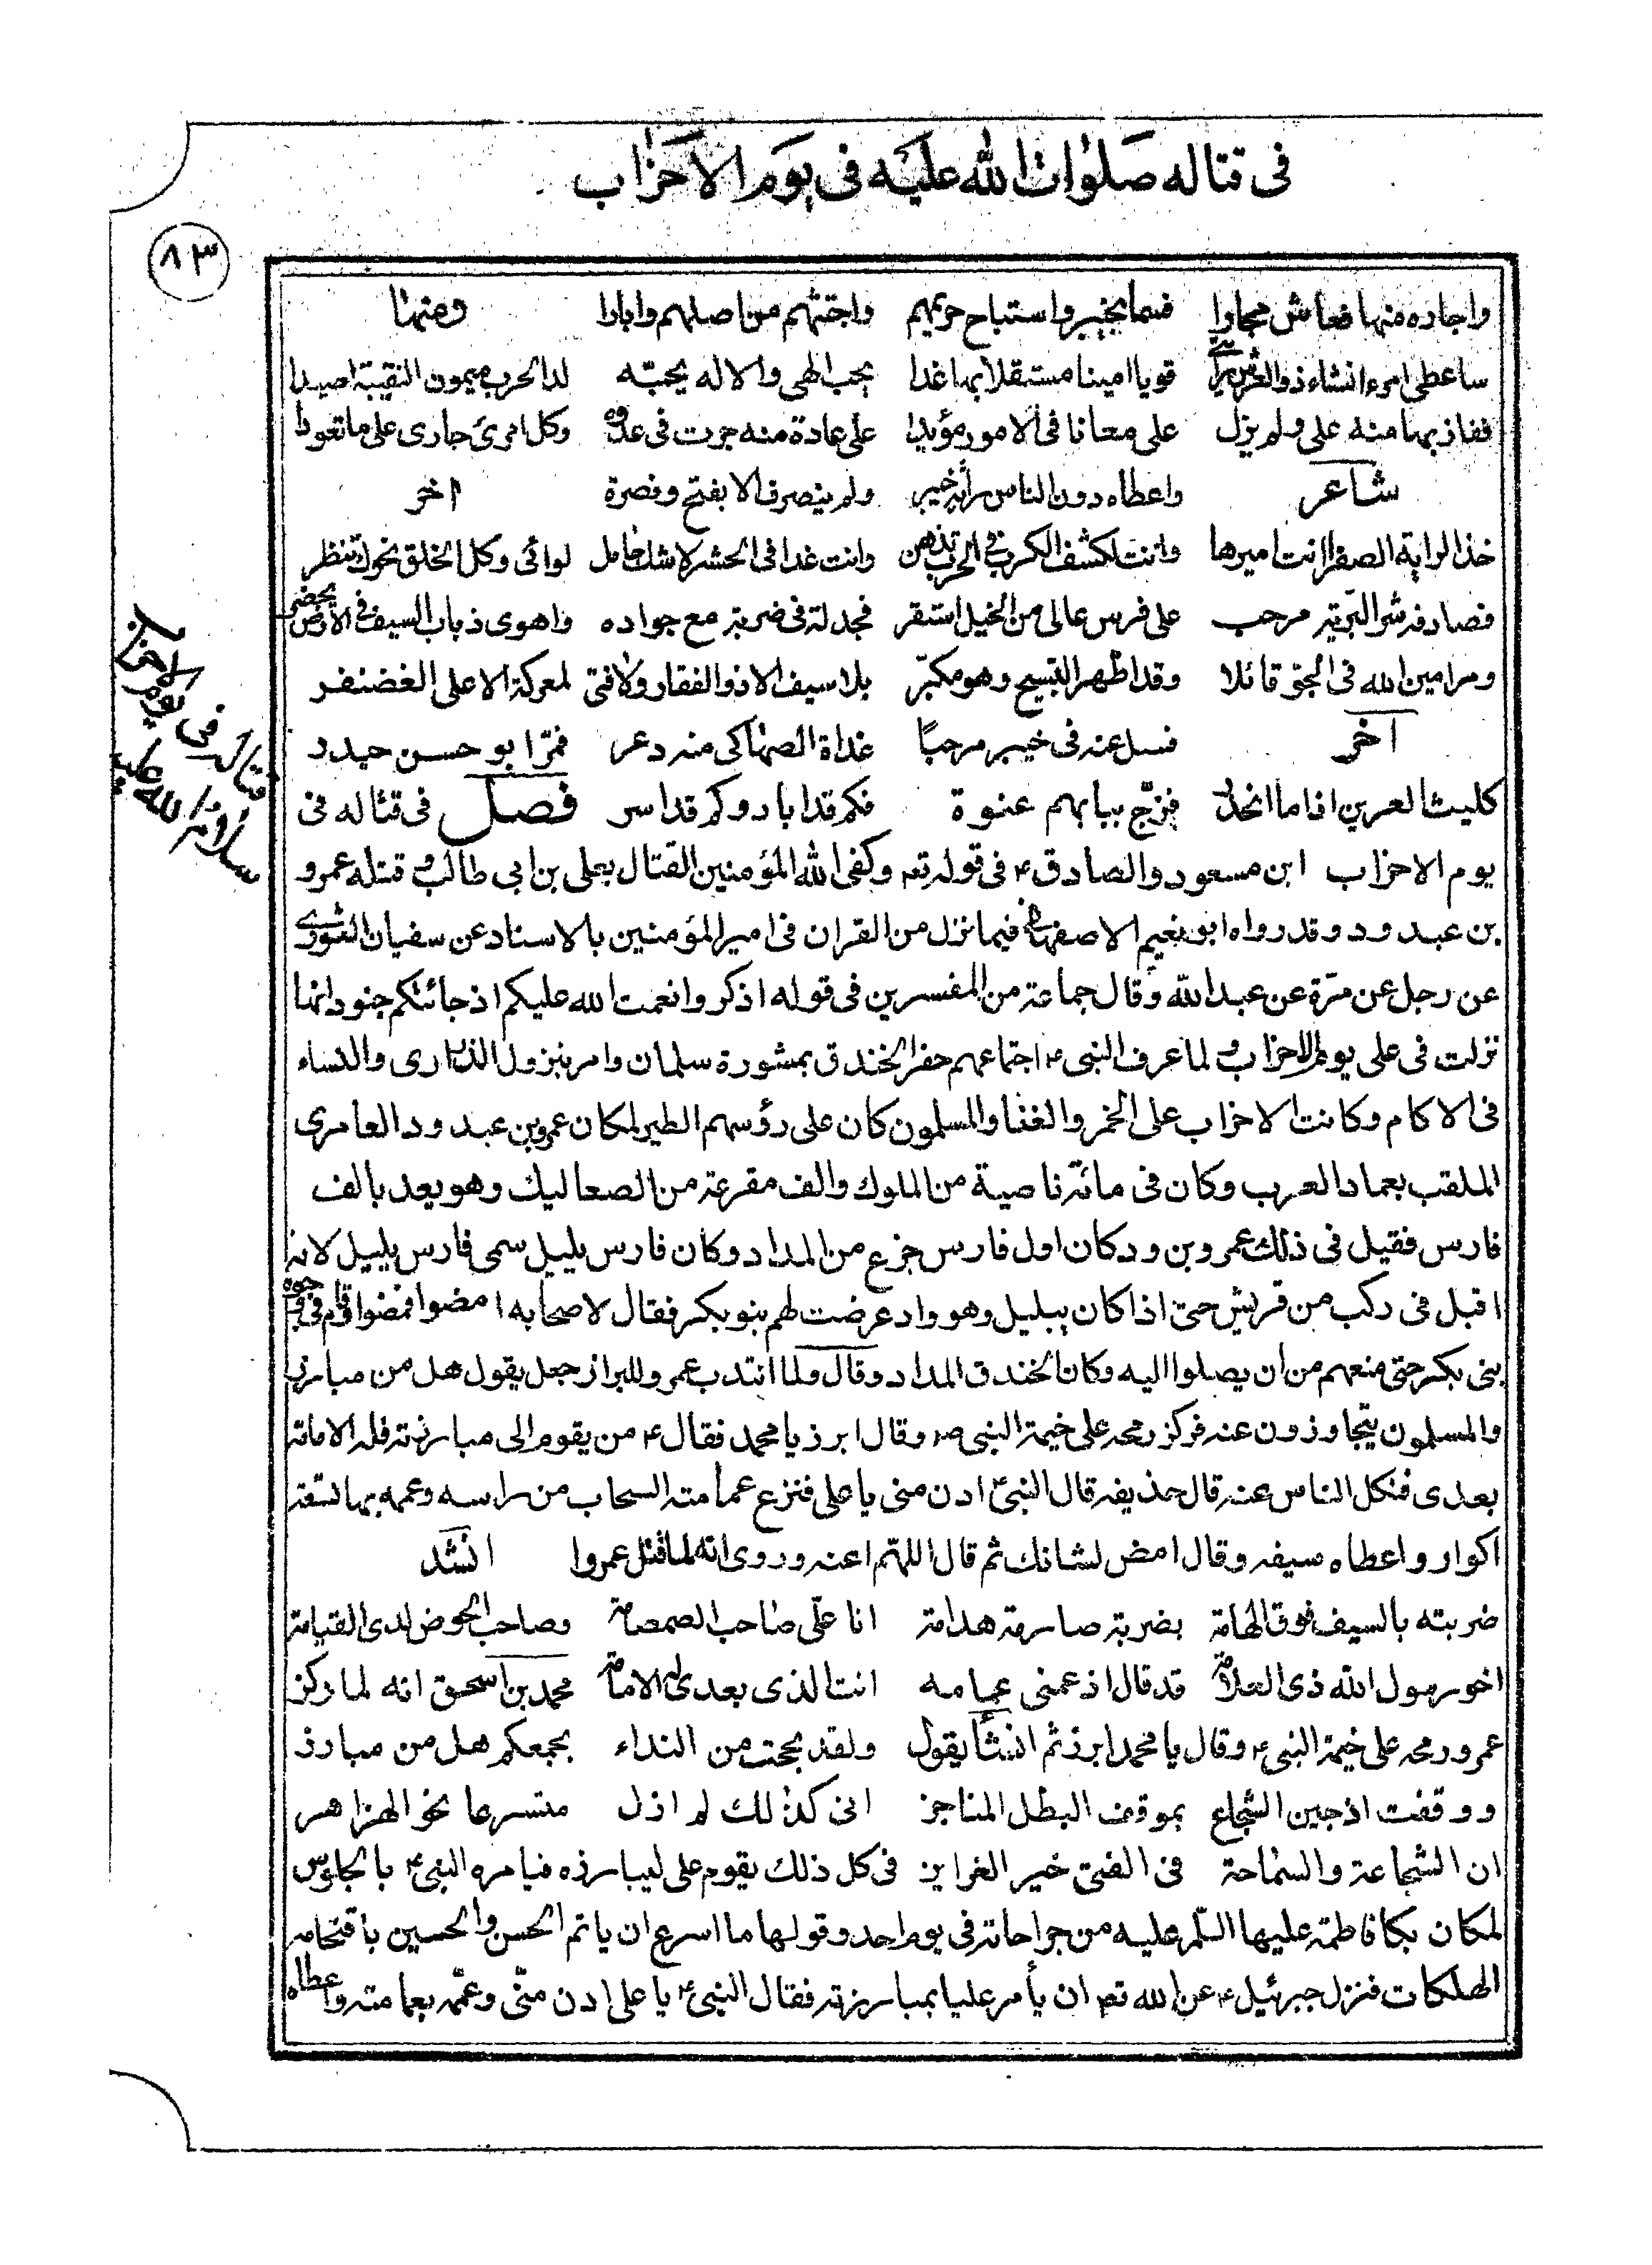 فى قتاله صلوات الله عليه فى يوم الاحزاب
٨٣
واجاره منها فعاش مجاورا فسما بخيبر واستباح حريمهم واجتثهم من اصلهم وابارا ومنها
ساعطى امرء انشاء ذو العرش قويا امينا مستقلا بها غدا يحب الهى والاله يحبّه لدا الحرب ميمون النقيبة اصيدا
ففاز بها منه على ولم يزل على معانا فى الامور مؤيدا على عادة منه جرت فى عدوه وكل امرئ جارى على ما تعودا
شاعر واعطاه دون الناس راية خيبر ولم ينصرف الا بفتح ونصرة اخر
خذ الراية الصفرا انت اميرها وانت لكشف الكرب فى الحرب تذهن وانت غدا فى الحشر لا شك حامل لوائى وكل الخلق نحوك تنظر
فصادفه شر البريّة مرحب على فرس عالى من الخيل استقر فجدلة فى ضربة مع جواده واهوى ذباب السيف فى الأرض يحضر
ومر امين الله فى الجوّ قائلا وقد اظهر التسبيح وهو مكبّر بلا سيف الا ذو الفقار ولا فتى لمعركة الا على الغضنفر
اخر فسل عنه فى خيبر مرحبًا غداة الصهاكى منه دعر فمرّا بو حسن حيدر
كليث العرين اذا ما انحدر فزجّ ببابهم عنوة فكم قد ابادو كم قد اسر فصل فى قتاله فى
يوم الاحزاب ابن مسعود والصادق ع فى قوله تع وكفى الله المؤمنين القتال بعلى بن ابى طالب و قتله عمرو
بن عبد ود وقد رواه ابو نعيم الاصفهانى فيما نزل من القران فى امير المؤمنين بالاسناد عن سفيان الثورى
عن رجل عن مرّة عن عبد الله وقال جماعة من المفسرين فى قوله اذكروا نعمت الله عليكم اذ جائتكم جنود انها
نزلت فى على يوم الاحزاب و لما عرف النبى ص اجتماعهم حفر الخندق بمشورة سلمان وامر بنزول الذرارى والنساء
فى الاكام وكانت الاحزاب على الخمر والغناء والمسلمون كان على رؤسهم الطير لمكان عمرو بن عبد ود العامرى
الملقب بعماد العرب وكان فى مائة ناصية من الملوك والف مقرعة من الصعاليك وهو يعد بالف
فارس فقيل فى ذلك عمرو بن ود كان اول فارس جزع من المداد وكان فارس يليل سمى فارس يليل لانه
اقبل فى ركب من قريش حتى اذا كان بيليل وهو واد عرضت لهم بنو بكر فقال لاصحابه امضوا فمضوا قام فى وجوه
بنى بكر حتى منعهم من ان يصلوا اليه وكان الخندق المداد وقال ولما انتدب عمرو للبراز جعل يقول هل من مبارز
والمسلمون يتجاوزون عنه فركز رمحه على خيمة النبى ص وقال ابرز يا محمد فقال ع من يقوم الى مبارزته فله الامامة
بعدى فنكل الناس عنه قال حذيفه قال النبى ع ادن منى يا على فنزع عمامته السحاب من راسه وعممه بها تسعة
اكوار واعطاه سيفه وقال امض لشانك ثم قال اللهم اعنه وروى انه لما قتل عمروا انشد
ضربته بالسيف فوق الهامة بضربة صارمة هدامة انا علىّ صاحب الصمصامة وصاحب الحوض لدى القيامة
اخو رسول الله ذى العلامة قد قال اذ عممنى عمامه انت الذى بعدى له الامامة محمد بن اسحق انه لما ركز
عمرو رمحه على خيمة النبى ص وقال يا محمد ابرز ثم انشأ يقول ولقد بححت من النداء بجمعكم هل من مبارز
ووقفت اذ جبن الشجاع بموقف البطل المناجز انى كذلك لم ازل متسرعا نحو الهزاهز
ان الشجاعة والسماحة فى الفتى خير الغرايز فى كل ذلك يقوم على ليبارزه فيامره النبى ع بالجلوس
لمكان بكا فاطمة عليها السلم عليه من جراحاته فى يوم احد وقولها ما اسرع ان ياتم الحسن والحسين باقتحامه
الهلكات فنزل جبرئيل ع عن الله تع ان يأمر عليا بمبارزته فقال النبى ع يا على ادن منّى وعمّمه بعمامته واعطاه
قتاله فى يوم الاحزاب
سلام الله عليه